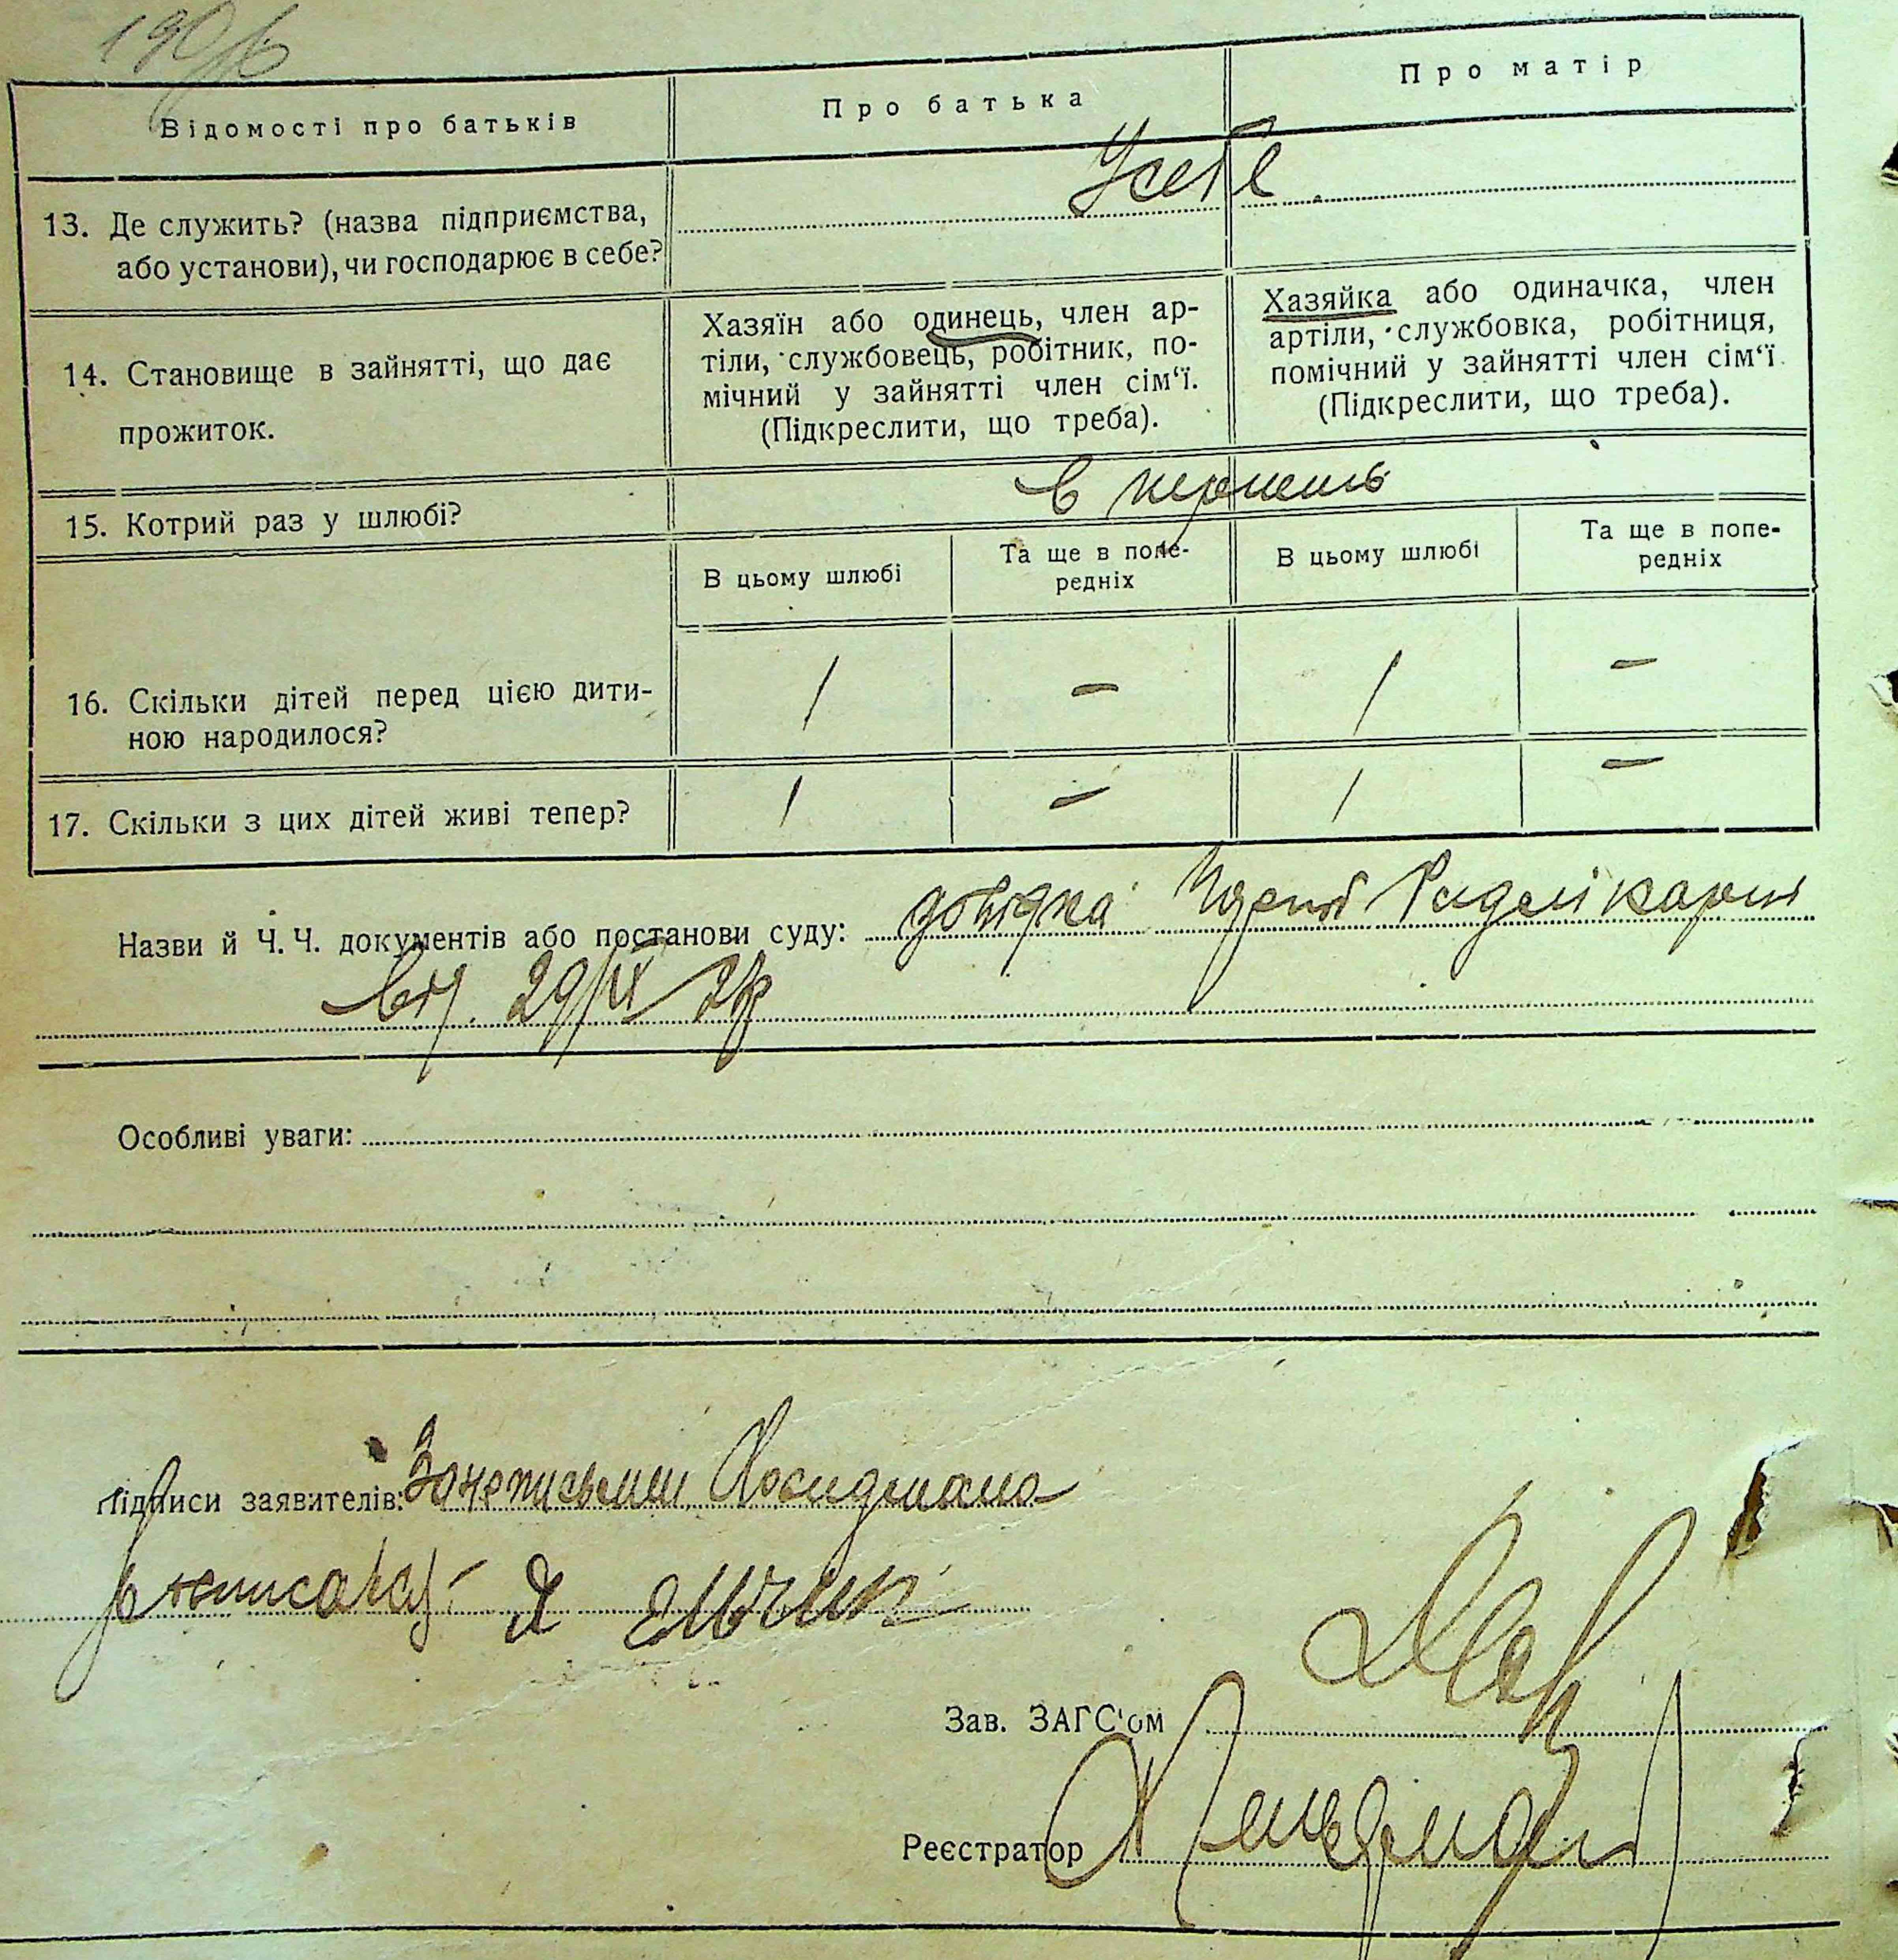 Відомості про батьків
Про батька
Про матір
13. Де служить? (назва підприємства,
або установи), чи господарює в себе?
У себе
14. Становище в зайнятті, що дає
прожиток.
Хазяїн або одинець, член ар-
тіли, службовець, робітник, по-
мічний у зайнятті член сім‘ї.
(Підкреслити, що треба).
Хазяйка або одиначка, член
артіли, службовка, робітниця,
помічний у зайнятті член сім‘ї.
(Підкреслити, що треба).
15. Котрий раз у шлюбі?
в перший
В цьому шлюбі
Та ще в попе-
редніх
В цьому шлюбі
Та ще в попе-
редніх
16. Скільки дітей перед цією дити-
ною народилося?
1 — 1 —
17. Скільки з цих дітей живі тепер?
1 — 1 —
Назви й Ч. Ч. документів або постанови суду: довідка
від 29/IX
Особливі уваги:
Підписи заявителів:
Зав. ЗАГС'ом
Реєстратор